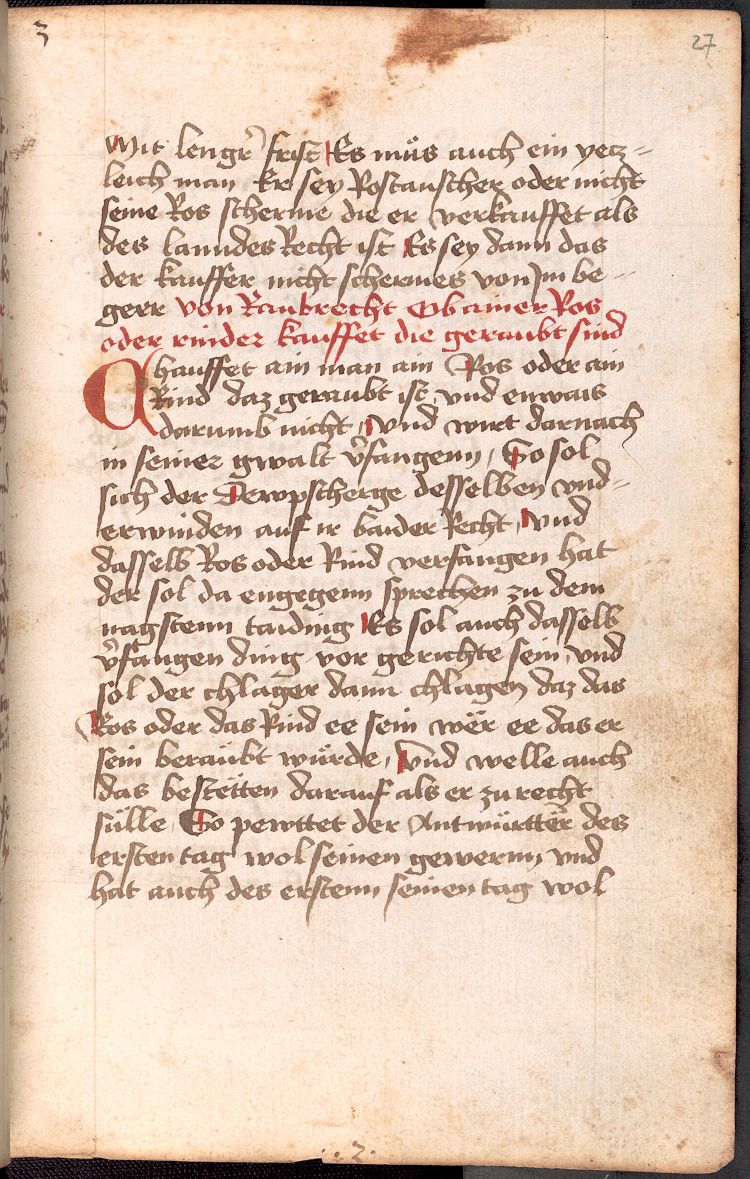 3
27
Mit lengr̄ frist Es můs auch ein yecz=
leich man Er sey Rostauscher oder nicht
seine Ros scherme die er verkauffet als
des lanndes Recht ist Es sey dann das
der kauffer nicht schermes von Im be=
gerr von Raubrecht Ob ainer Ros
oder rinder kauffet die geraubt sind
Chauffet ain man ain Ros oder ain
Rind daz geraubt ist, und enwais
darumb nicht, Und wirt darnach
in seiner gwalt v̄fangenn, So sol
sich der Scherge desselben und=
erwinden auf ir baider Recht, Und
dasselb Ros oder Rind verfangen hat
der sol da engegenn sprechen zu dem
nagstenn taiding Es sol auch dasselb
v̄fangen ding vor gerichte sein, und
sol der chlager dann chlagen daz das
Ros oder das Rind ee sein wër ee das er
sein beraübt würde, Und welle auch
das bestëtten darauf als er zu recht
sülle So pewttet der Antwürttër des
ersten tag wol seinen gewernn, und
hat auch des erstenn seinen tag wol
2